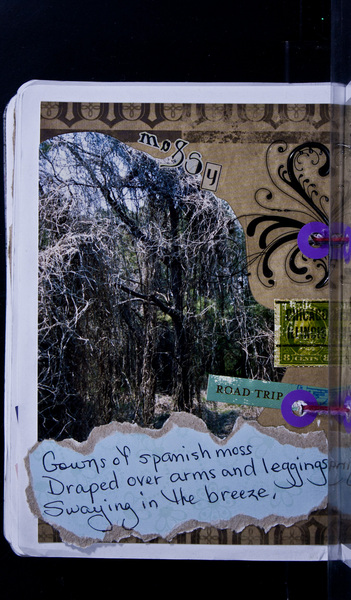 mossy
CHICAGO
ILLINOIS
8 CENTS 8
ROAD TRIP
Gowns of spanish moss
Draped over arms and leggings
Swaying in the breeze.